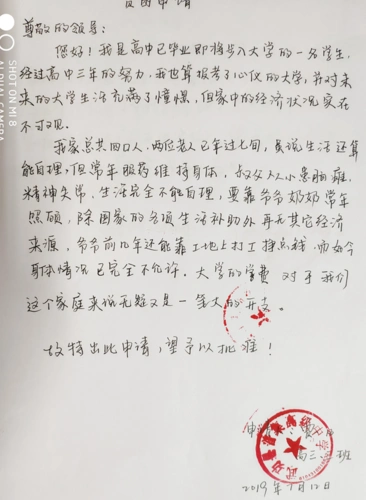 贫困申请
尊敬的领导:
您好!我是高中已毕业即将步入大学的一名学生,
经过高中三年的努力,我也算报考了心仪的大学,并对未
来的大学生活充满了憧憬,但家中的经济状况实在
不可观.
我家总共四口人,两位老人已年过七旬,虽说生活还算
能自理,但常年服药维持身体,叔叔从小患脑瘫,
精神失常,生活完全不能自理,要靠爷爷奶奶常年
照顾,除国家的各项生活补助外再无其它经济
来源,爷爷前几年还能靠工地上打工挣点钱,而如今
身体情况已完全不允许。大学的学费对于我们
这个家庭来说无疑又是一笔大的开支。
故特出此申请,望予以批准!
申
高三 班
2019年7月12日
SHOT ON MI 8